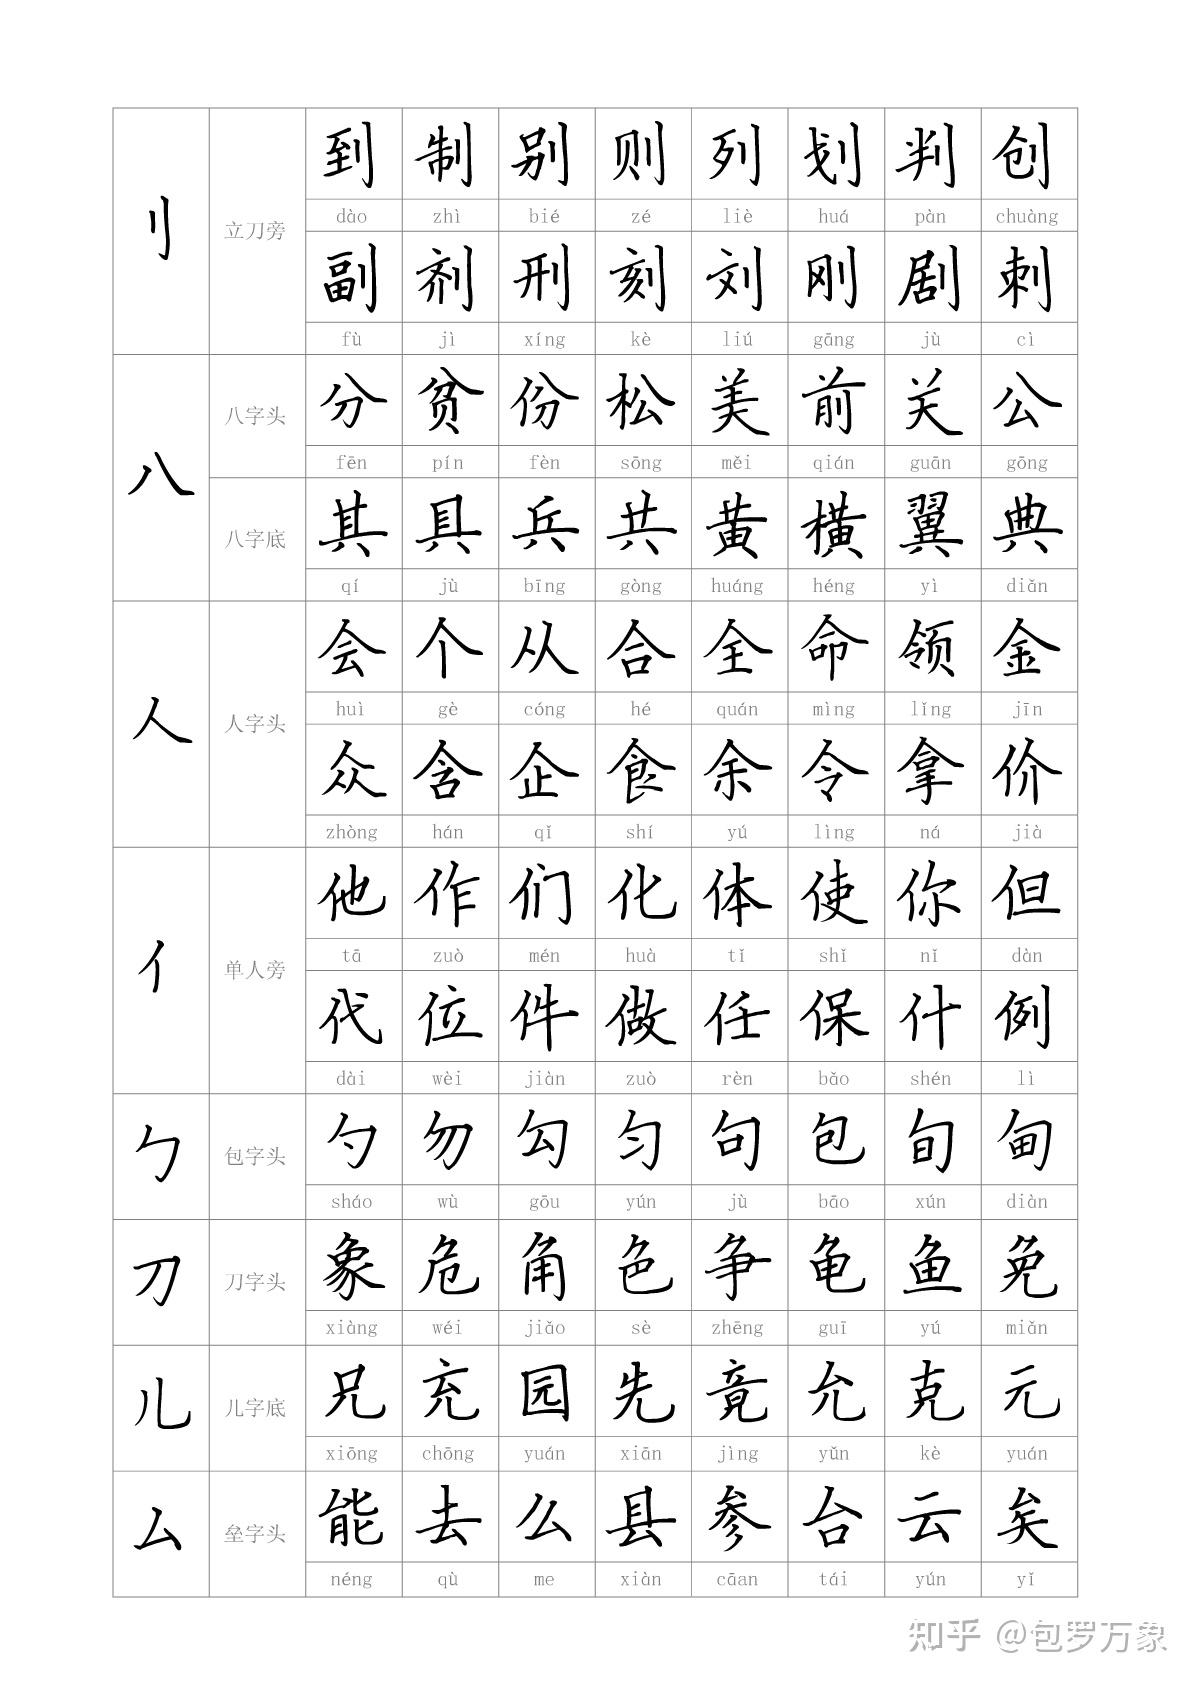 到 制 别 则 列 划 判 创
dào zhì bié zé liè huá pàn chuàng
刂 立刀旁
副 剂 刑 刻 刘 刚 剧 刺
fù jì xíng kè liú gāng jù cì
分 贫 份 松 美 前 关 公
八字头
fēn pín fèn sōng měi qián guān gōng
八
其 具 兵 共 黄 横 翼 典
八字底
qí jù bīng gòng huáng héng yì diǎn
会 个 从 合 全 命 领 金
huì gè cóng hé quán mìng lǐng jīn
人 人字头
众 含 企 食 余 令 拿 价
zhòng hán qǐ shí yú lìng ná jià
他 作 们 化 体 使 你 但
tā zuò mén huà tǐ shǐ nǐ dàn
亻 单人旁
代 位 件 做 任 保 什 例
dài wèi jiàn zuò rèn bǎo shén lì
勹 包字头 勺 勿 勾 匀 句 包 旬 甸
sháo wù gōu yún jù bāo xún diàn
刀 刀字头 象 危 角 色 争 龟 鱼 免
xiàng wéi jiǎo sè zhēng guī yú miǎn
儿 儿字底 兄 充 园 先 竟 允 克 元
xiōng chōng yuán xiān jìng yǔn kè yuán
厶 垒字头 能 去 么 县 参 台 云 矣
néng qù me xiàn cāan tái yún yǐ
知乎 @包罗万象